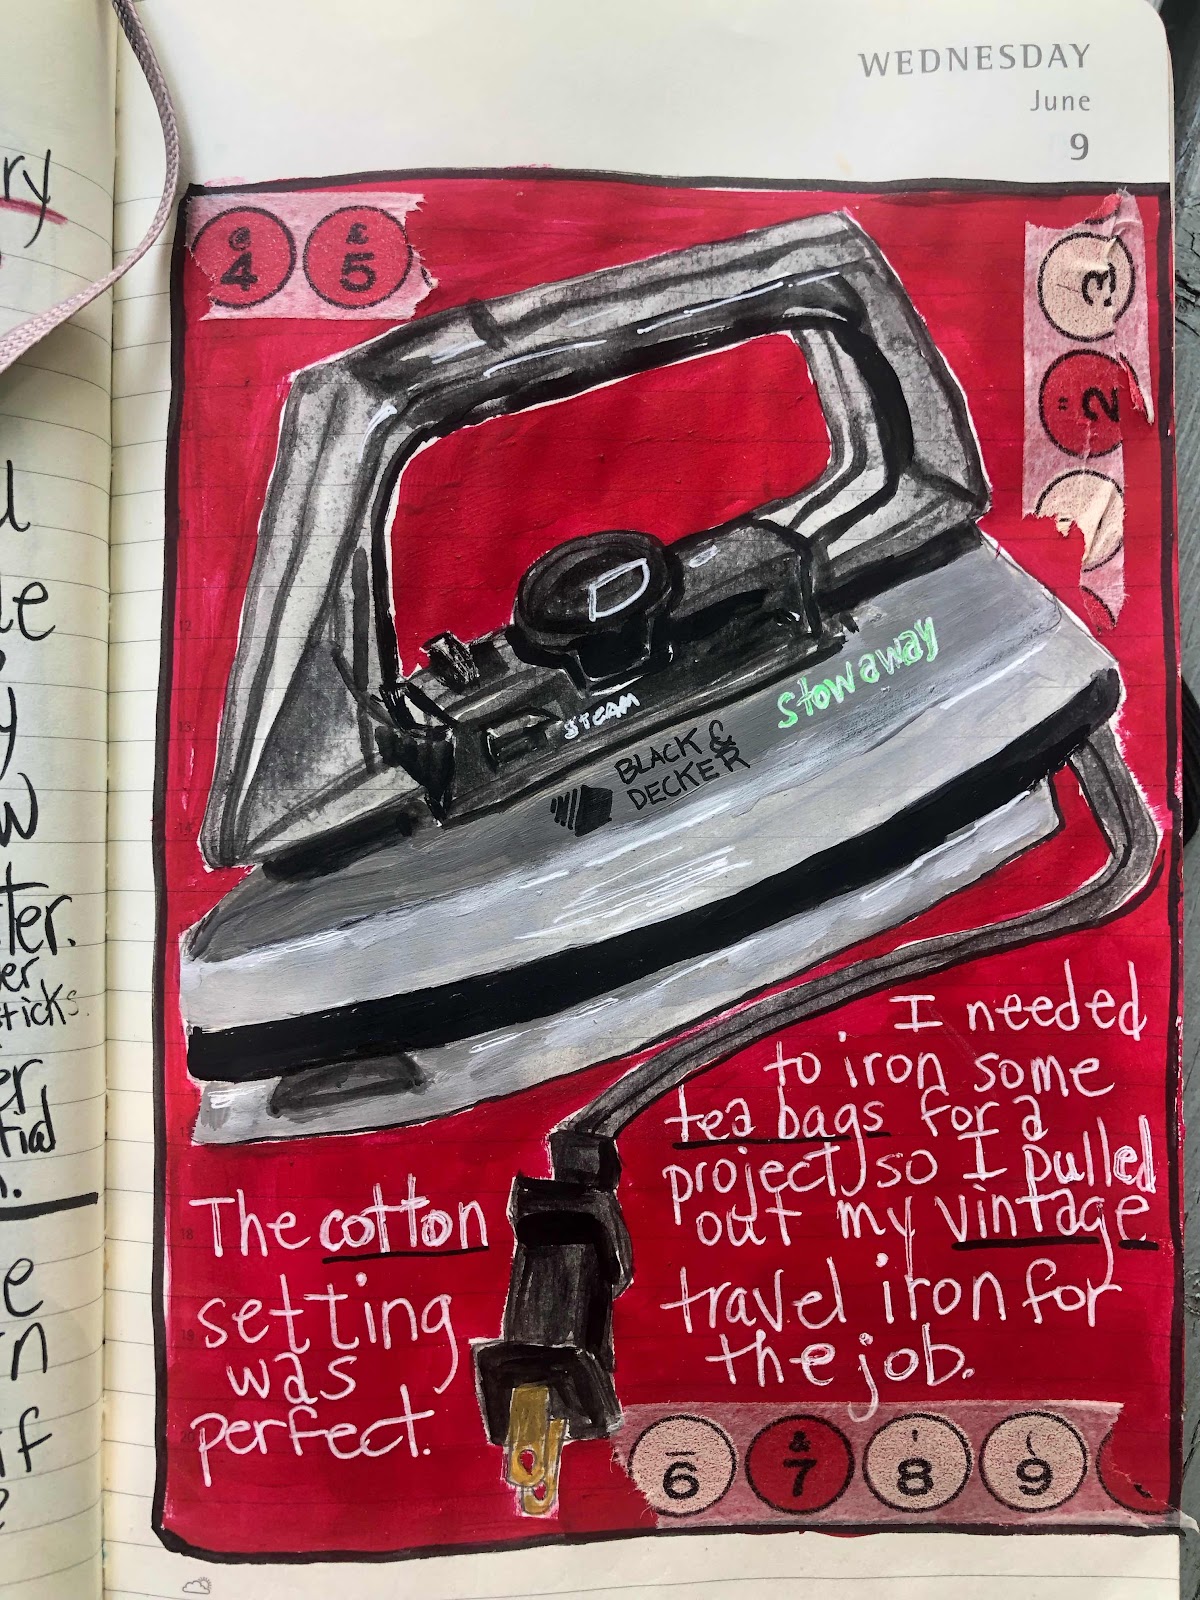 WEDNESDAY
June
9
@
4
£
5
3
"
2
STEAM
stowaway
BLACK &
DECKER
I needed
to iron some
tea bags for a
project, so I pulled
out my vintage
travel iron for
the job.
The cotton
setting
was
perfect.
6
&
7
'
8
(
9
ry
de
y
w
ter.
er
sticks.
er
tial
n.
e
rn
if
12
13
14
18
19
20